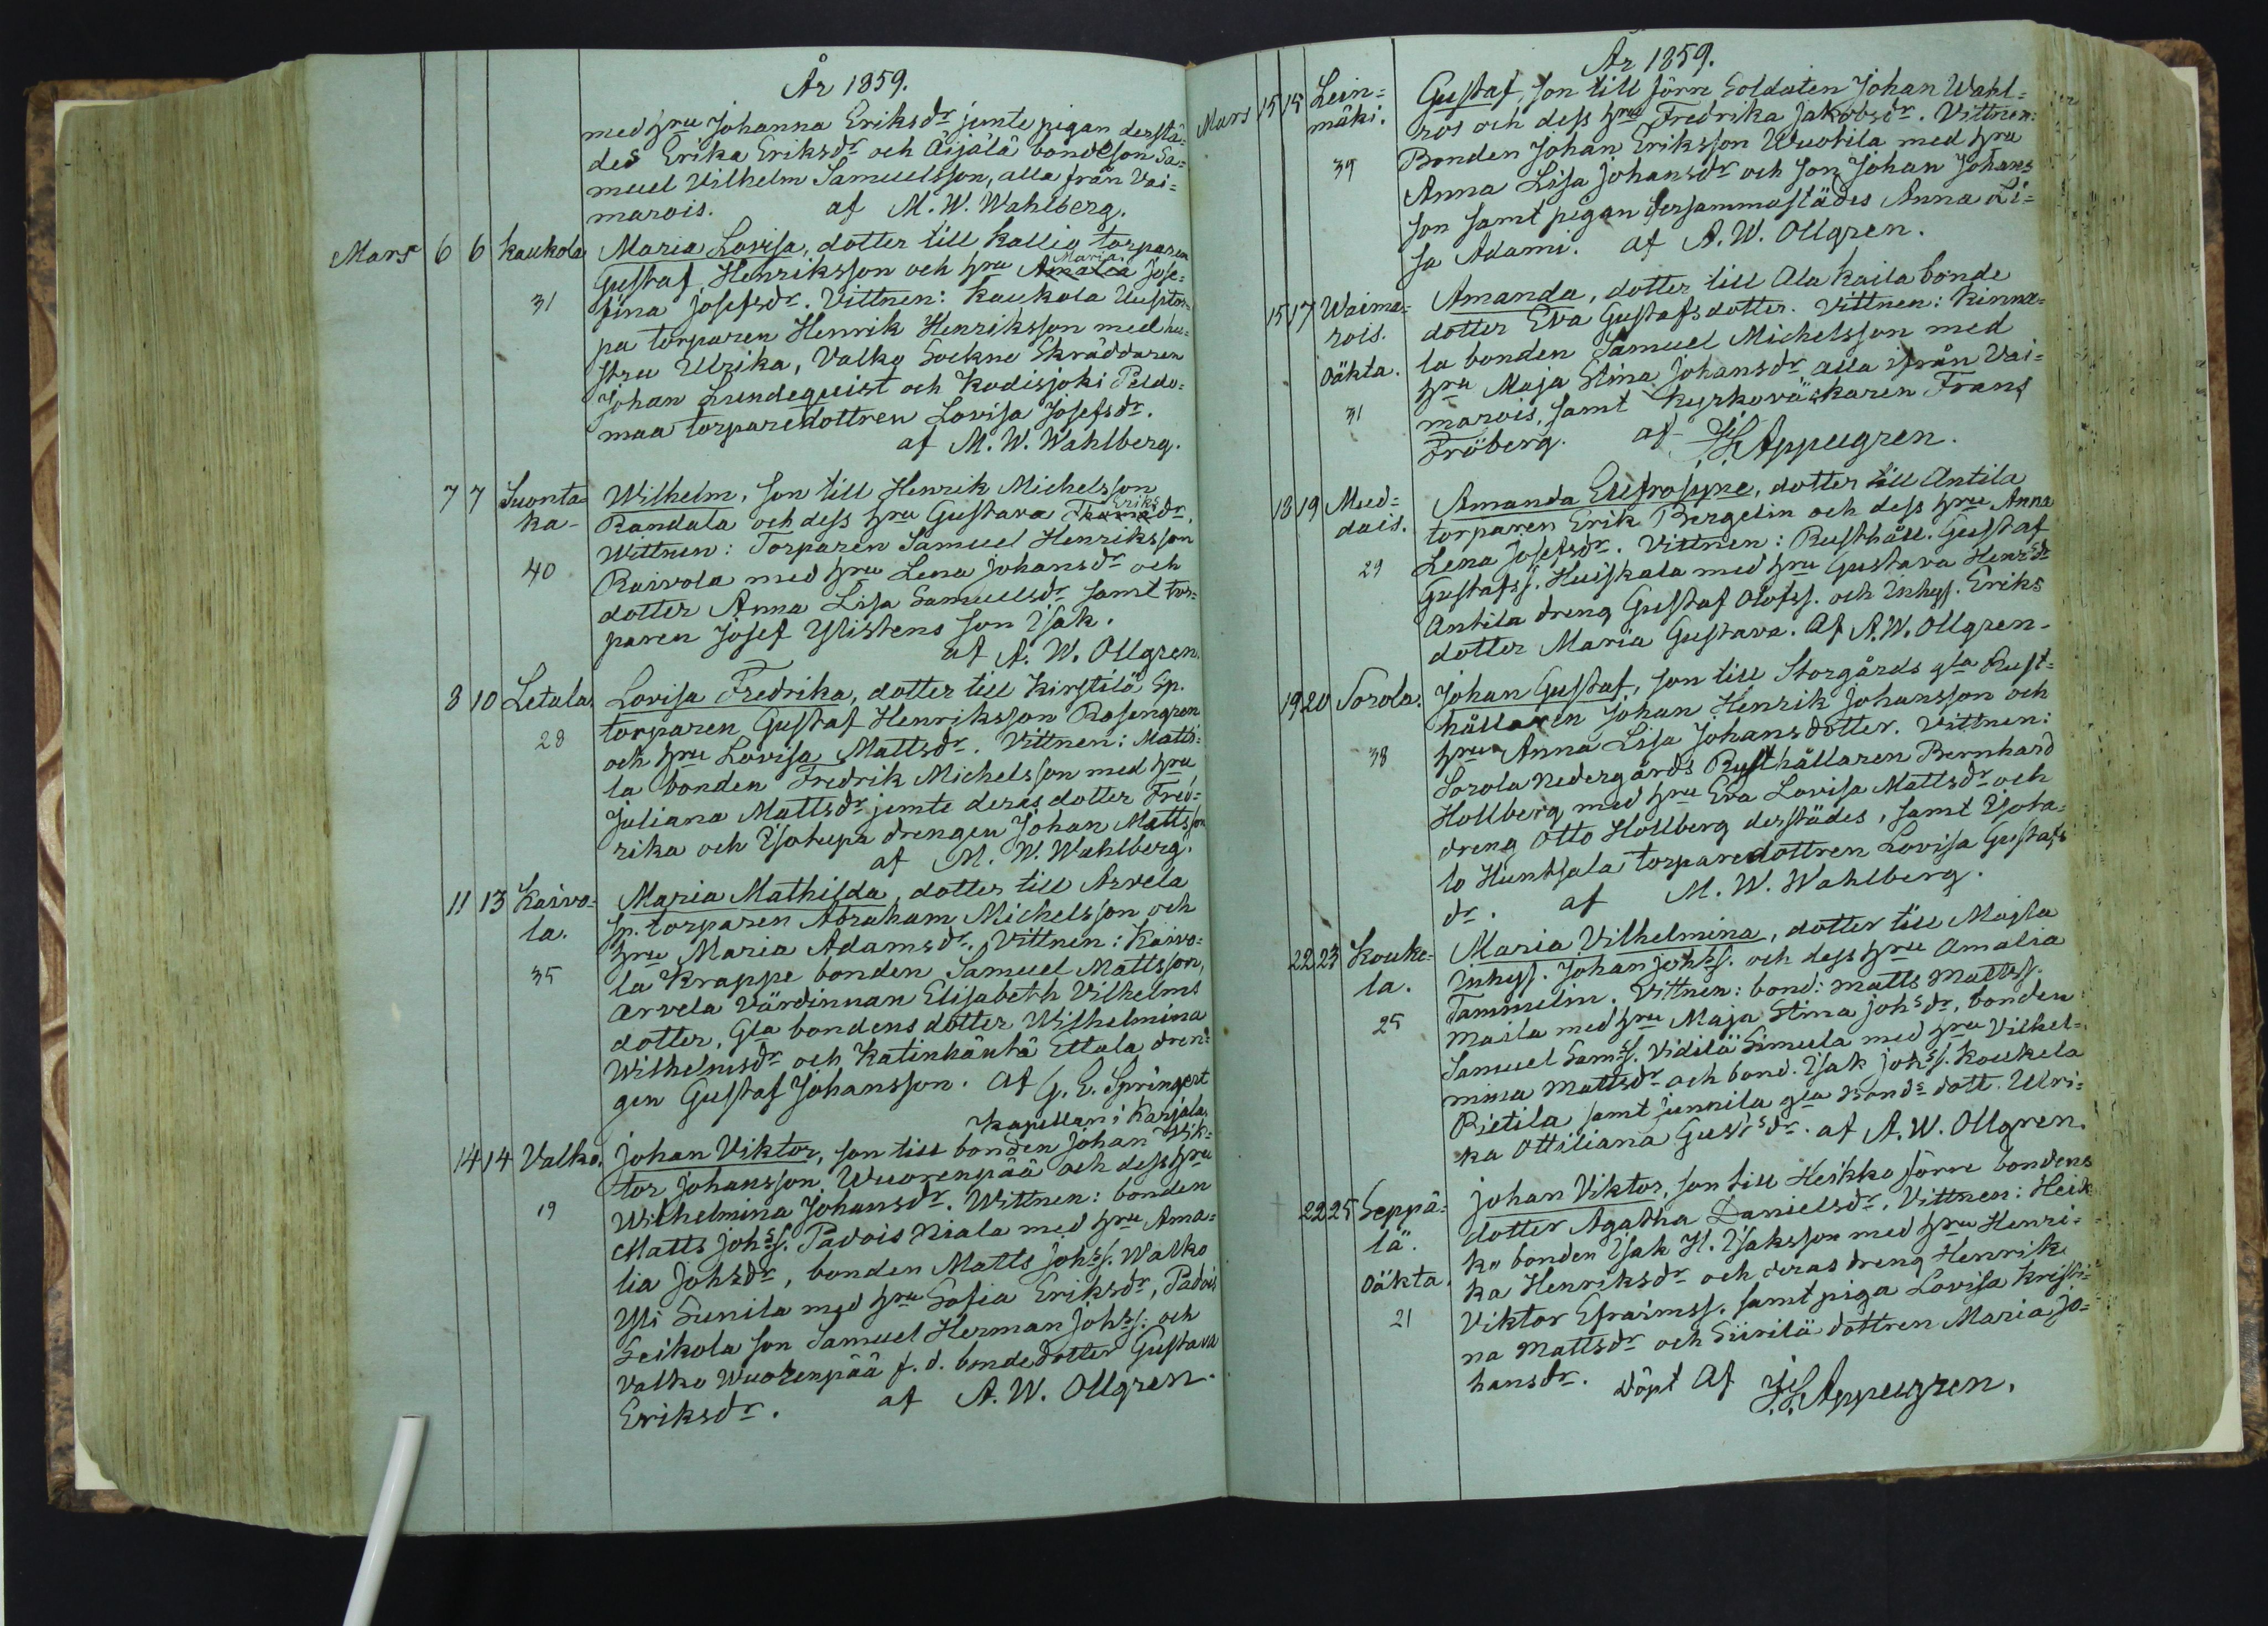 År 1859.
med hru Johanna Eriksdr jemte pigan derstä-
des Erika Eriksdr och Äijälä bondeson Sa-
muel Vilhelm Samuelsson, alla från Vai-
marois. af M. W. Wahlberg.
Mars 6 6 Kaukola Maria Lovisa, dotter till Kallio torparen
Gustaf Henriksson och hru Amalia Maria Jose-
31 fina Josefsdr. Vittnen: Kaukola Uustor-
pa torparen Henrik Henriksson med hu-
stru Ulrika, Valko Sockne Skräddaren
Johan Lundequist och Kodisjoki Peldo-
maa torparedottren Lovisa Josefsdr.
af M. W. Wahlberg.
7 7 Suonta- Wilhelm, son till Henrik Michelsson
ka Randala och dess hru Gustava Eriksdr.
Wittnen: Torparen Samuel Henriksson
40 Raivola med hru Lena Johansdr och
dotter Anna Lisa Samuelsdr samt tor-
paren Josef Ylistens son Isak.
af A. W. Ollgren.
8 10 Letala. Lovisa Fredrika, dotter till Kirstilä Sp.
torparen Gustaf Henriksson Rosengren
28 och hru Lovisa Mattsdr. Vittnen: Matti-
la bonden Fredrik Michelsson med hru
Juliana Mattsdr jemte deras dotter Fred-
rika och Isotupa drengen Johan Mattsson
af M. W. Wahlberg.
11 13 Kaivo- Maria Mathilda, dotter till Arvela
la. Sp. torparen Abraham Michelsson och
hru Maria Adamsdr. Vittnen: Kaivo-
35 la Krappe bonden Samuel Mattsson,
Arvela Värdinnan Elisabeth Vilhelms
dotter, Gla bondens dotter Wilhelmina
Wilhelmsdr och Katinhäntä Ettala dren-
gen Gustaf Johansson. Af G. E. Springert
Kapellan i Karjala.
14 14 Valko. Johan Viktor, son till bonden Johan Vik-
tor Johansson Wuorenpää och dess hru
19 Wilhelmina Johansdr. Wittnen: bonden
Matts Johss. Padois Niala med hru Ama-
lia Johsdr, bonden Matts Johss. Walko
Yli Sunila med hru Sofia Eriksdr, Padois
Seikola son Samuel Herman Johss. och
Valko Wuorenpää f. d. bondedotter Gustava
Eriksdr. af A. W. Ollgren.
År 1859.
Mars 15 15 Lein- Gustaf, son till förre Soldaten Johan Wahl-
mäki. ros och dess hru Fredrika Jakobsdr. Vittnen:
39 Bonden Johan Eriksson Wuotila med hru
Anna Lisa Johansdr och son Johan Johans
son samt pigan dersammastädes Anna Li-
sa Adami. af A. W. Ollgren.
15 17 Waima- Amanda, dotter till Ala Kaila bonde
rois. dotter Eva Gustafsdotter. Vittnen: Kinna-
oäkta. la bonden Samuel Michelsson med
hru Maja Stina Johansdr alla ifrån Vai-
31 marois, samt Kyrkoväktaren Frans
Fröberg. af Appelgren.
18 19 Mud- Amanda Eufrosyne, dotter till Antila
dais. torparen Erik Bergelin och dess hru Anna
Lena Josefsdr. Vittnen: Rusthåll. Gustaf
29 Gustafss. Huiskala med hru Gustava Henrsdr
Antila dreng Gustaf Olofss. och Inhys. Eriks
dotter Maria Gustava. Af A. W. Ollgren.
19 20 Sorola. Johan Gustaf, son till Storgårds gla Rust-
hållaren Johan Henrik Johansson och
38 hru Anna Lisa Johansdotter. Vittnen:
Sorola Nedergårds Rusthållaren Bernhard
Hollberg med hru Eva Lovisa Mattsdr och
dreng Otto Hollberg derstädes, samt Isota-
lo Huntsala torparedottren Lovisa Gustafs
dr. af M. W. Wahlberg.
22 23 Kouke- Maria Vilhelmina, dotter till Majla
la. Inhys. Johan Johss. och dess hru Amalia
Tammelin. Vittnen: bond: Matts Mattss.
25 Maila med hru Maja Stina Johsdr, bonden
Samuel Samss. Vidilä Simula med hru Vilhel-
mina Mattsdr och bond. Isak Johss. Koukela
Rietila samt Junnila gla bonds dott. Ulri-
ka Ottiliana Gustsdr. af A. W. Ollgren.
22 25 Seppä- Johan Viktor, son till Heikko förre bondens
lä. dotter Agatha Danielsdr. Vittnen: Heik
oäkta. ko bonden Isak H. Isaksson med hru Henri-
ka Henriksdr och deras dreng Henrik
21 Viktor Efraimss. samt piga Lovisa Kristi-
na Mattsdr och Siirilä dottren Maria Jo-
hansdr. döpt af Appelgren.